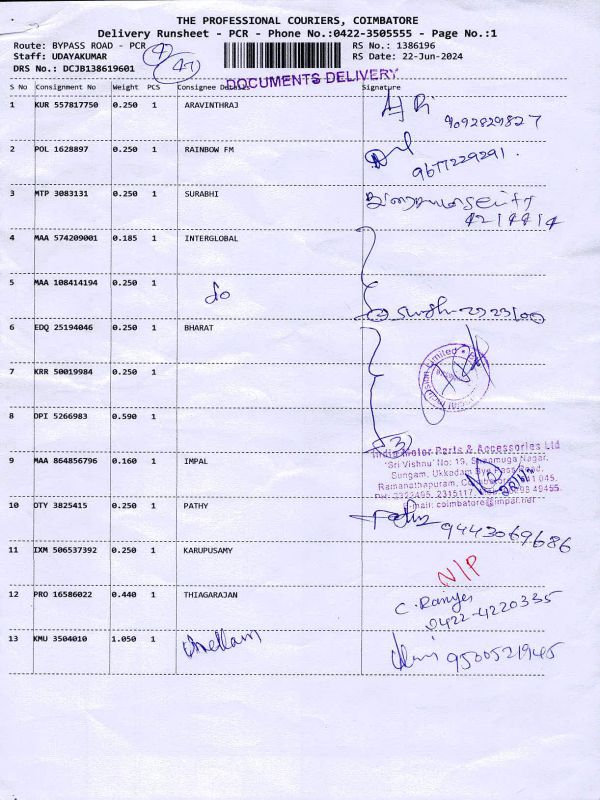 THE PROFESSIONAL COURIERS, COIMBATORE
Delivery Runsheet - PCR - Phone No.:0422-3505555 - Page No.:1
Route: BYPASS ROAD - PCR RS No.: 1386196
Staff: UDAYAKUMAR RS Date: 22-Jun-2024
DRS No.: DCJB138619601
DOCUMENTS DELIVERY
S No Consignment No Weight PCS Consignee Details Signature
1 KUR 557817750 0.250 1 ARAVINTHRAJ
9092829827
2 POL 1628897 0.250 1 RAINBOW FM
9677229291.
3 MTP 3083131 0.250 1 SURABHI
4 MAA 574209001 0.185 1 INTERGLOBAL
5 MAA 108414194 0.250 1 do
6 EDQ 25194046 0.250 1 BHARAT
7 KRR 50019984 0.250 1
8 DPI 5266983 0.590 1
3
India Motor Parts & Accessories Ltd
9 MAA 864856796 0.160 1 IMPAL
'Sri Vishnu' No: 19, Shanmuga Nagar,
Sungam, Ukkadam Bye Pass Road,
Ramanathapuram, Coimbatore 641 045.
Email: coimbatore@impal.net
10 OTY 3825415 0.250 1 PATHY
9443069686
11 IXM 506537392 0.250 1 KARUPUSAMY
N/P
12 PRO 16586022 0.440 1 THIAGARAJAN
0422-4220335
13 KMU 3504010 1.050 1 Chellam
9500521945